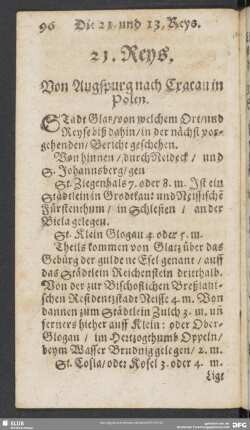 96 Die 21. und 13. Reys.
21. Reys.
Von Augspurg nach Cracau in
Polen.
Stadt Glatz/von welchem Ort/und
Reyse biß dahin/in der nächst vor-
gehenden/Bericht geschehen.
Von hinnen/durch Neideck/und
S. Johannsberg/gen
St. Ziegenhals 7. oder 8. m. Ist ein
Städtlein in Grodtkau und Neyssische
Fürstenthum/in Schlesien/an der
Biela gelegen.
St. Klein Glogau 4 oder 5. m.
Theils kommen von Glatz über das
Gebürg der guldene Esel genant/auff
das Städtlein Reichenstein drithalb.
Von der zur Bischofflichen Breßlaui-
schen Residentzstadt Neisse 4. m. Von
dannen zum Städtlein Zulch 3. m. un
ferners hieher auff Klein: oder Ober-
Glogau/im Hertzogthumb Oppeln/
beym Wasser Brudnig gelegen/2. m.
St. Cosla/oder Kosel 3. oder 4. m.
Ligt